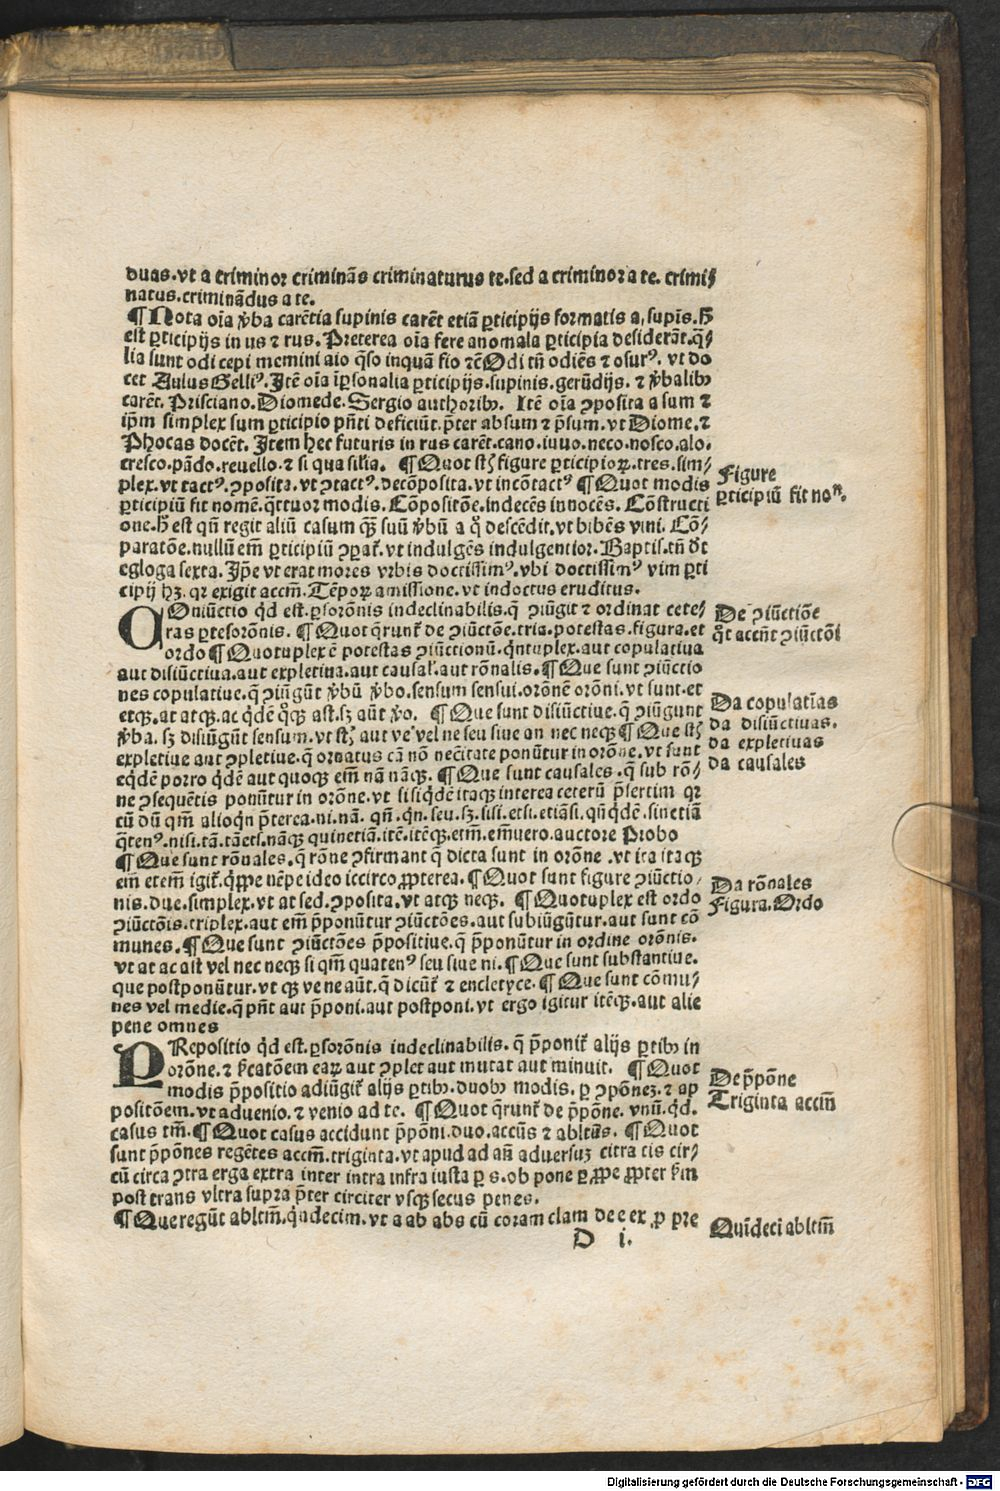 duas.vt a criminor criminãs criminaturus te.sed a criminor a te. crimi⸗
natus.criminãdus a te.
¶Nota oĩa v̓ba carẽtia supinis carẽt etiã ꝑticipijs formatis a, supĩs. hͦ
est ꝑticipijs in us ⁊ rus. Preterea oĩa fere anomala ꝑticipia desiderãt.q̃⸗
lia sunt odi cepi memini aio q̃so inquã fio ⁊cẽ Odi tñ odiẽs ⁊ osurꝰ. vt do
cet Aulus Gelliꝰ. Itẽ oĩa ĩꝑsonalia ꝑticipijs.supinis.gerũdijs. ⁊ v̓balibꝫ
carẽt. Prisciano. Diomede. Sergio authoribꝫ. Itẽ oĩa ꝯposita a sum ⁊
ip̃m simplex sum ꝑticipio pñti deficiũt. p̃ter absum ⁊ p̃sum. vt Diome. ⁊
Phocas docẽt. Item hec futuris in rus carẽt.cano.iuuo.neco.nosco.alo.
cresco.pãdo.reuello.⁊ si qua silĩa. ¶Quot st̃ figure ꝑticipioꝝ.tres.sim⸗
plex.vt tactꝰ. ꝯposita. vt ꝯtactꝰ. decõposita. vt incõtactꝰ ¶Quot modis
ꝑticipiũ fit nomẽ. q̃ttuor modis. Cõpositõe. indecẽs innocẽs. Cõstructi
one. hͦ est qñ regit aliũ casum qꝫ suũ v̓bũ a q̊ descẽdit. vt bibẽs vini. Cõ⸗
paratõe. nullũ em̃ ꝑticipiũ ꝯꝑat̃. vt indulgẽs indulgentior. Baptis. tñ
egloga sexta. Ip̃e vt erat mores vrbis doctissimꝰ. vbi doctissimꝰ vim ꝑti
cipij hꝫ. qꝛ exigit accm̃. Tẽpoꝝ amissione. vt indoctus eruditus.
COniũctio q̊d est.ꝑs orõnis indeclinabilis.q̃ ꝯiũgit ⁊ ordinat cete⸗
ras ꝑtes orõnis. ¶Quot q̃runt̃ de ꝯiũctõe.tria.potestas.figura.et
ordo ¶Quotuplex ẽ potestas ꝯiũctionũ. q̃ntuplex.aut copulatiua
aut disiũctiua.aut expletiua.aut causal̃.aut rõnalis. ¶Que sunt ꝯiũctio
nes copulatiue.q̃ ꝯiũgũt v̓bũ v̓bo.sensum sensui.orõnẽ orõni. vt sunt.et
etqꝫ.at atqꝫ.ac q̊dẽ q̊qꝫ ast.sꝫ aũt v̓o. ¶Que sunt disiũctiue.q̃ ꝯiũgunt
v̓ba. sꝫ disiũgũt sensum. vt st̃ aut ve vel ne seu siue an nec neqꝫ ¶Que st̃
expletiue aut ꝯpletiue.q̃ ornatus cã nõ necĩtate ponũtur in orõne. vt sunt
eq̊dẽ porro q̊dẽ aut quoqꝫ em̃ nã nãqꝫ. ¶Que sunt causales.q̃ sub rõ⸗
ne ꝯsequẽtis ponũtur in orõne. vt si siq̊dẽ itaqꝫ interea ceterũ p̃sertim qꝛ
cũ dũ qm̃ alioq̊n p̃terea.ni.nã. qñ. q̊n.seu.sꝫ.sisi.etsi.etiãsi.qñq̊dẽ.sinetiã
q̃tenꝰ.nisi.tã.tãetsi.nãqꝫ quinetiã.itẽ.itẽqꝫ.etm̃.em̃uero.auctore Probo
¶Que sunt rõnales.q̃ rõne ꝯfirmant q̃ dicta sunt in orõne .vt ita itaqꝫ
em̃ etem̃ igit̃.q̊ꝑpe nẽpe ideo iccirco ꝓpterea. ¶Quot sunt figure ꝯiũctio⸗
nis.due.simplex.vt at sed.ꝯposita.vt atqꝫ neqꝫ. ¶Quotuplex est ordo
ꝯiũctõis.triplex.aut em̃ p̃ponũtur ꝯiũctões.aut subiũgũtur.aut sunt cõ
munes. ¶Que sunt ꝯiũctões p̃positiue.q̃ p̃ponũtur in ordine orõnis.
vt at ac ast vel nec neqꝫ si qm̃ quatenꝰ seu siue ni. ¶Que sunt substantiue.
que postponũtur. vt qꝫ ve ne aũt.q̃ dicũt̃ ⁊ encletyce. ¶Que sunt cõmu⸗
nes vel medie.q̃ pñt aut p̃poni.aut postponi.vt ergo igitur itẽqꝫ.aut alie
pene omnes
PRepositio q̊d est.ꝑs orõnis indeclinabilis. q̃ p̃ponit̃ alijs ꝑtibꝫ in
orõne. ⁊ s̃catõem eaꝝ aut ꝯplet aut mutat aut minuit. ¶Quot
modis p̃positio adiũgit̃ alijs ꝑtibꝫ.duobꝫ modis. ꝑ ꝯpõneꝫ. ⁊ ap
positõem.vt aduenio.⁊ venio ad te. ¶Quot q̃runt̃ de p̃põne. vnũ.q̊d.
casus tm̃. ¶Quot casus accidunt p̃põni.duo.accũs ⁊ abltũs. ¶Quot
sunt p̃põnes regẽtes accm̃.triginta.vt apud ad añ aduersuꝫ citra cis cir⸗
cũ circa ꝯtra erga extra inter intra infra iusta ꝑ s.ob pone ꝑ ꝓpe ꝓpter s̃m
post trans vltra supra p̃ter circiter vsqꝫ secus penes.
¶Que regũt abltm̃.q̊ndecim. vt a ab abs cũ coram clam de e ex ꝓ pre
D i.
Figure
ꝑticipiũ fit noñ.
De ꝯiũctiõe
q̊t accñt ꝯiũctõi
Da copulatĩas
da disiũctiuas.
da expletiuas
da causales
Da rõnales
Figura.Ordo
De p̃põne
Triginta accm̃
Quĩdeci abltm̃
Digitalisierung gefördert durch die Deutsche Forschungsgemeinschaft - DFG